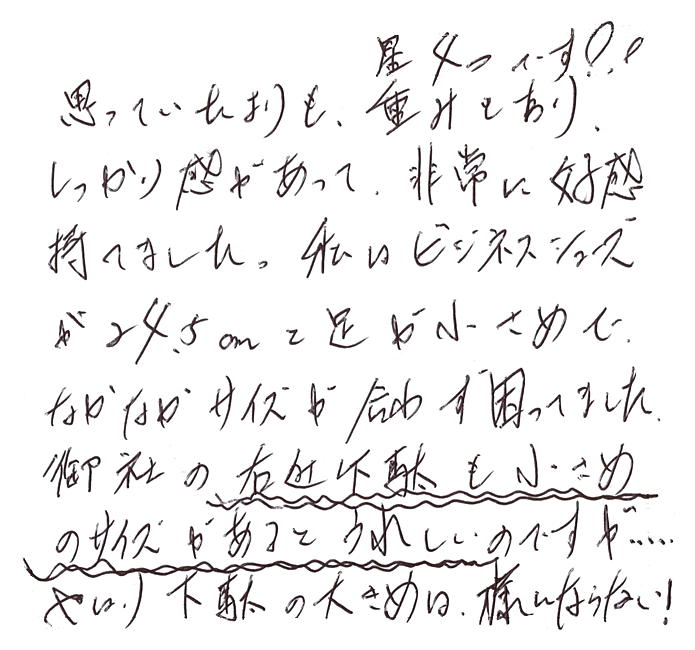 星4つです!!
思っていたよりも、重みもあり、
しっかり感があって、非常に好感
持てました。私はビジネスシューズ
が24.5cmと足が小さめで、
なかなかサイズが合わず困ってました。
御社の右近下駄も小さめ
のサイズがあるとうれしいのですが……
やはり下駄の大きめは、様にならない!